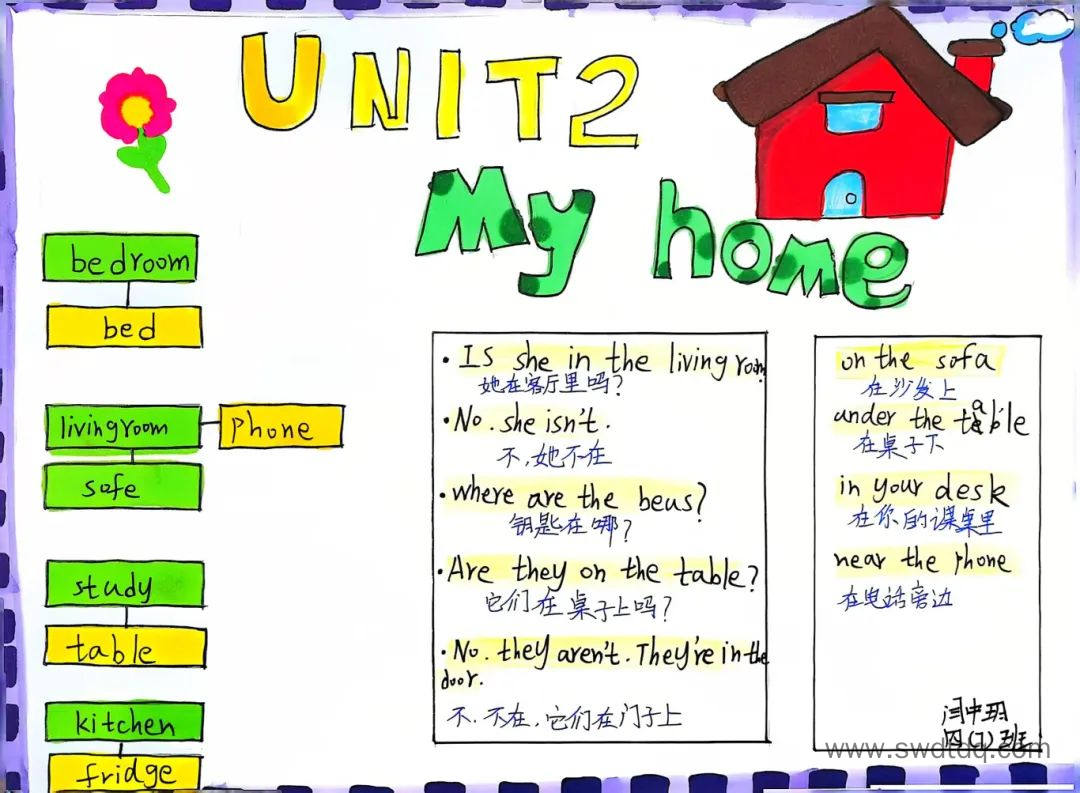 UNIT2
My home
bedroom
bed
livingroom
phone
sofe
study
table
kitchen
fridge
·Is she in the living room?
她在客厅里吗?
·No. she isn't.
不,她不在
·where are the beus?
钥匙在哪?
·Are they on the table?
它们在桌子上吗?
·No. they aren't. They're in the
door.
不.不在,它们在门子上
on the sofa
在沙发上
under the table
在桌子下
in your desk
在你的课桌里
near the phone
在电话旁边
www.swdtdq.com